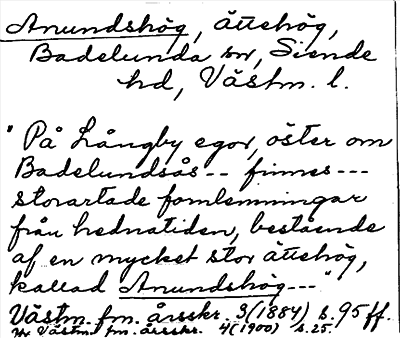 Anundshög, ättehög,
Badelunda sn, Siende
hd, Västm. l.
"På Långby egor, öster om
Badelundsås -- finnes ---
storartade fornlemningar
från hednatiden, bestående
af en mycket stor ättehög,
kallad Anundshög ---"
Västm. fm. årsskr. 3(1884) s. 95 ff.
Västm. fm. årsskr. 4(1900) s. 25.